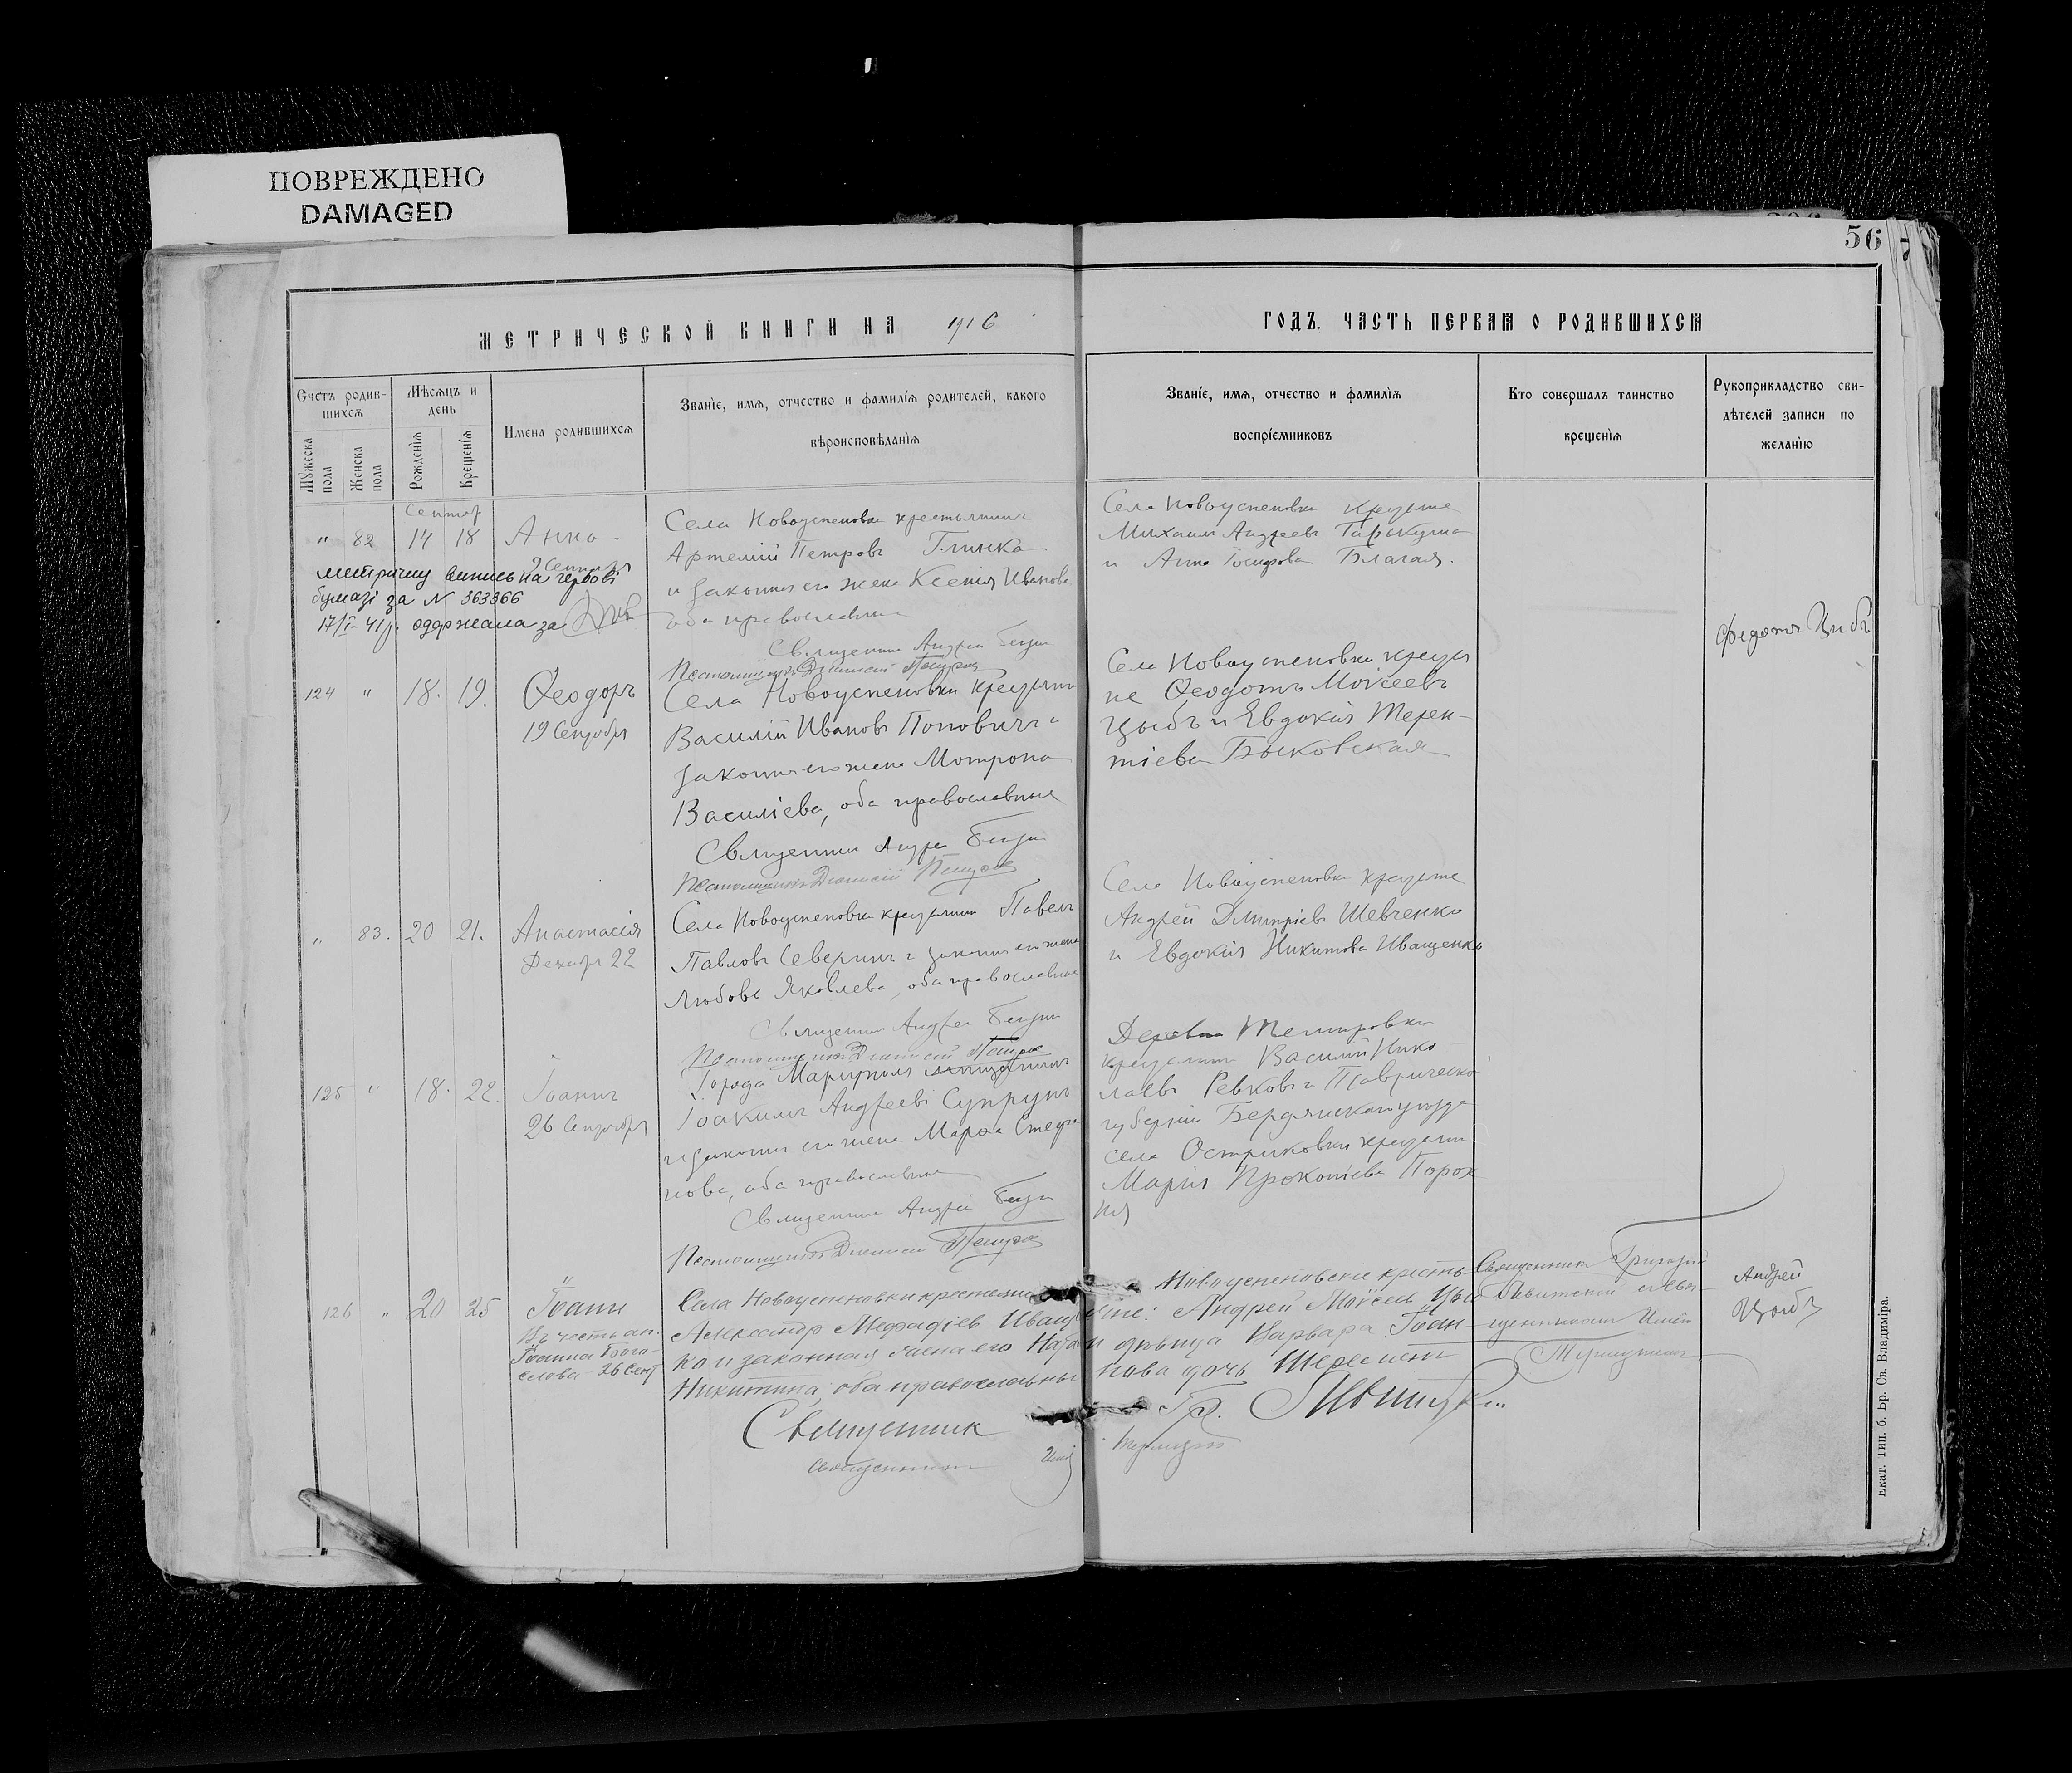 ПОВРЕЖДЕНО
DAMAGED
56
МЕТРИЧЕСКОЙ КНИГИ НА 1916
ГОДЪ. ЧАСТЬ ПЕРВАЯ О РОДИВШИХСЯ
Счетъ родив-
шихся
Мужеска
пола
Женска
пола
Мѣсяцъ и
день
Рожденія
Крещенія
Имена родившихся
Званіе, имя, отчество и фамилія родителей, какого
вѣроисповѣданія
Званіе, имя, отчество и фамилія
воспріемниковъ
Кто совершалъ таинство
крещенія
Рукоприкладство сви-
дѣтелей записи по
желанію
" 82 14 18 Анна
метричну випись на гербові
бумазі за N 363366
17/I-41р. одержала за
Села Новоуспеновки крестьянинъ
Артемій Петровъ Глинка
и законная его жена Ксенія Иванова
оба православные
Священник Андрей
Псаломщикъ Дионисий
Села Новоуспеновки
Михаил Андреевъ
и Анна Благая.
Федотъ Цибъ
124 " 18. 19. Ѳеодоръ
19 Сентября
Села Новоуспеновки
Василій Ивановъ Поповичъ и
законная его жена Мотрона
Василіева, оба православные
Священник Андрей
Псаломщикъ Дионисий
Села Новоуспеновки
не Ѳеодотъ Моисеевъ
Цыбъ и Евдокія Терен-
тіева Быковская
" 83. 20 21. Анастасія
Декабря 22
Села Новоуспеновки Павелъ
Павловъ Северинъ и законная его жена
Любовь Яковлева, оба православные
Священник Андрей
Псаломщикъ Дионисий
Села Новоуспеновки
Андрей Димитріевъ Шевченко
и Евдокія Никитова Иващенко
125 " 18. 22. Іоаннъ
26 Сентября
Города Мариуполя мещанинъ
Іоакимъ Андреевъ Супрунъ
и законная его жена Марѳа Стефа
нова, оба православные
Священник Андрей
Псаломщикъ Дионисий
Деревни Темировки
Василій Нико
лаевъ Ревковъ и Таврической
губерніи Бердянскаго уезда
села Остриковки
Марія Прокопіева Порох
ня
126 " 20 25 Іоаннъ
Въ честь ап.
Іоанна Бого-
слова 26 Сент
Села Новоуспеновки
Александр Иващ
ко и законная жена его
Никитина, оба православны
Священник
Священник
Новоуспеновскіе кресть
яне: Андрей Моисеев Цыб
и дѣвица Варвара Іоан-
нова дочь
Гр.
Священник Григорій
Андрей
Цыбъ
Екат. Тип. б. Бр. Св. Владиміра.